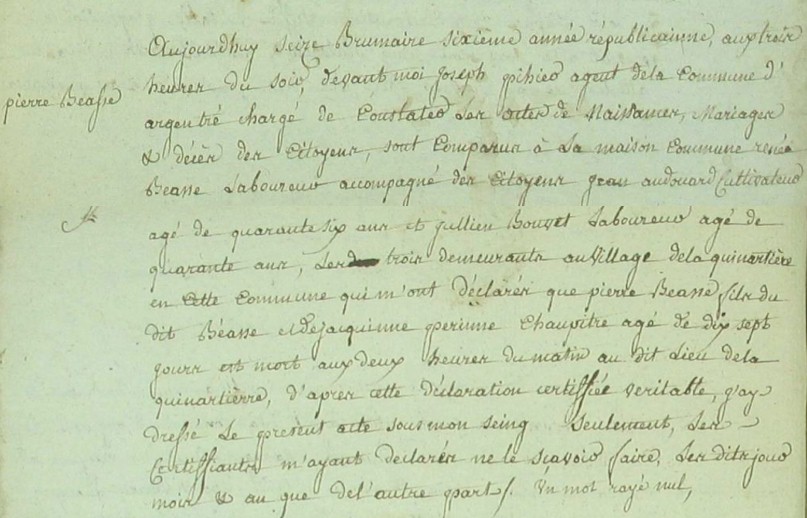 Aujourdhuy seize Brumaire sixième année républicainne, aux trois
heures du soir, devant moi joseph pihier agent dela Commune d'
pierre Beasse
argentré chargé de Constater Les actes de Naissances, Mariages
& décès des Citoyens, sont Comparus à La maison Commune renée
Beasse Laboureur accompagné des Citoyens jean audouard Cultivateur
agé de quarante six ans et jullien Bouvet Laboureur agé de
quarante ans, Les trois demeurants au village dela quinartière
en Cette Commune qui m'ont déclarés que pierre Beasse fils du
dit Béasse et de jacquinne perinne Chaupitre agé de dix sept
jours est mort aux deux heures du matin au dit Lieu dela
quinartièrre, d'apres cette déclaration certiffiée veritable, j'ay
dressé Le present acte sous mon seing seulement, Les
Certiffiants m'ayant declarés ne le scavoir faire, Les dits jour
mois & an que del'autre part /. Un mot rayé nul,